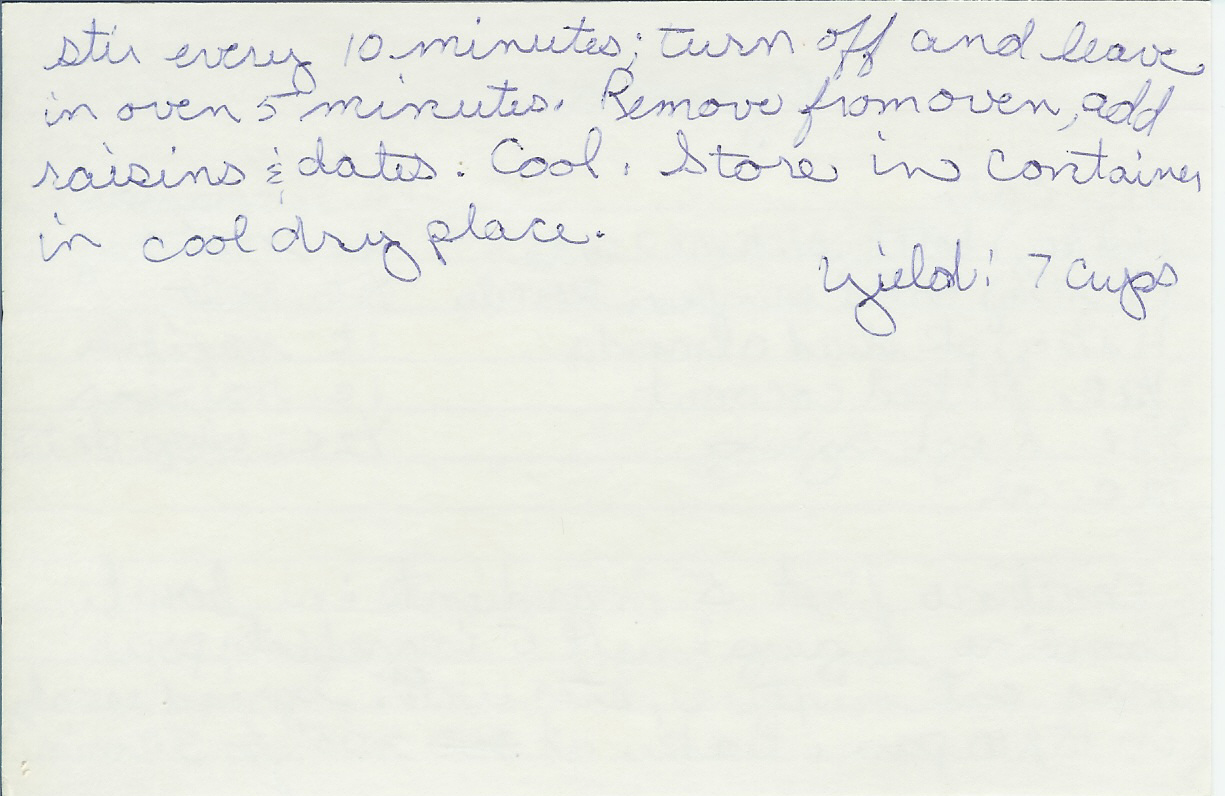 stir every 10 minutes; turn off and leave
in oven 5 minutes. Remove from oven, add
raisins & dates. Cool. Store in container
in cool dry place.
Yield: 7 cups